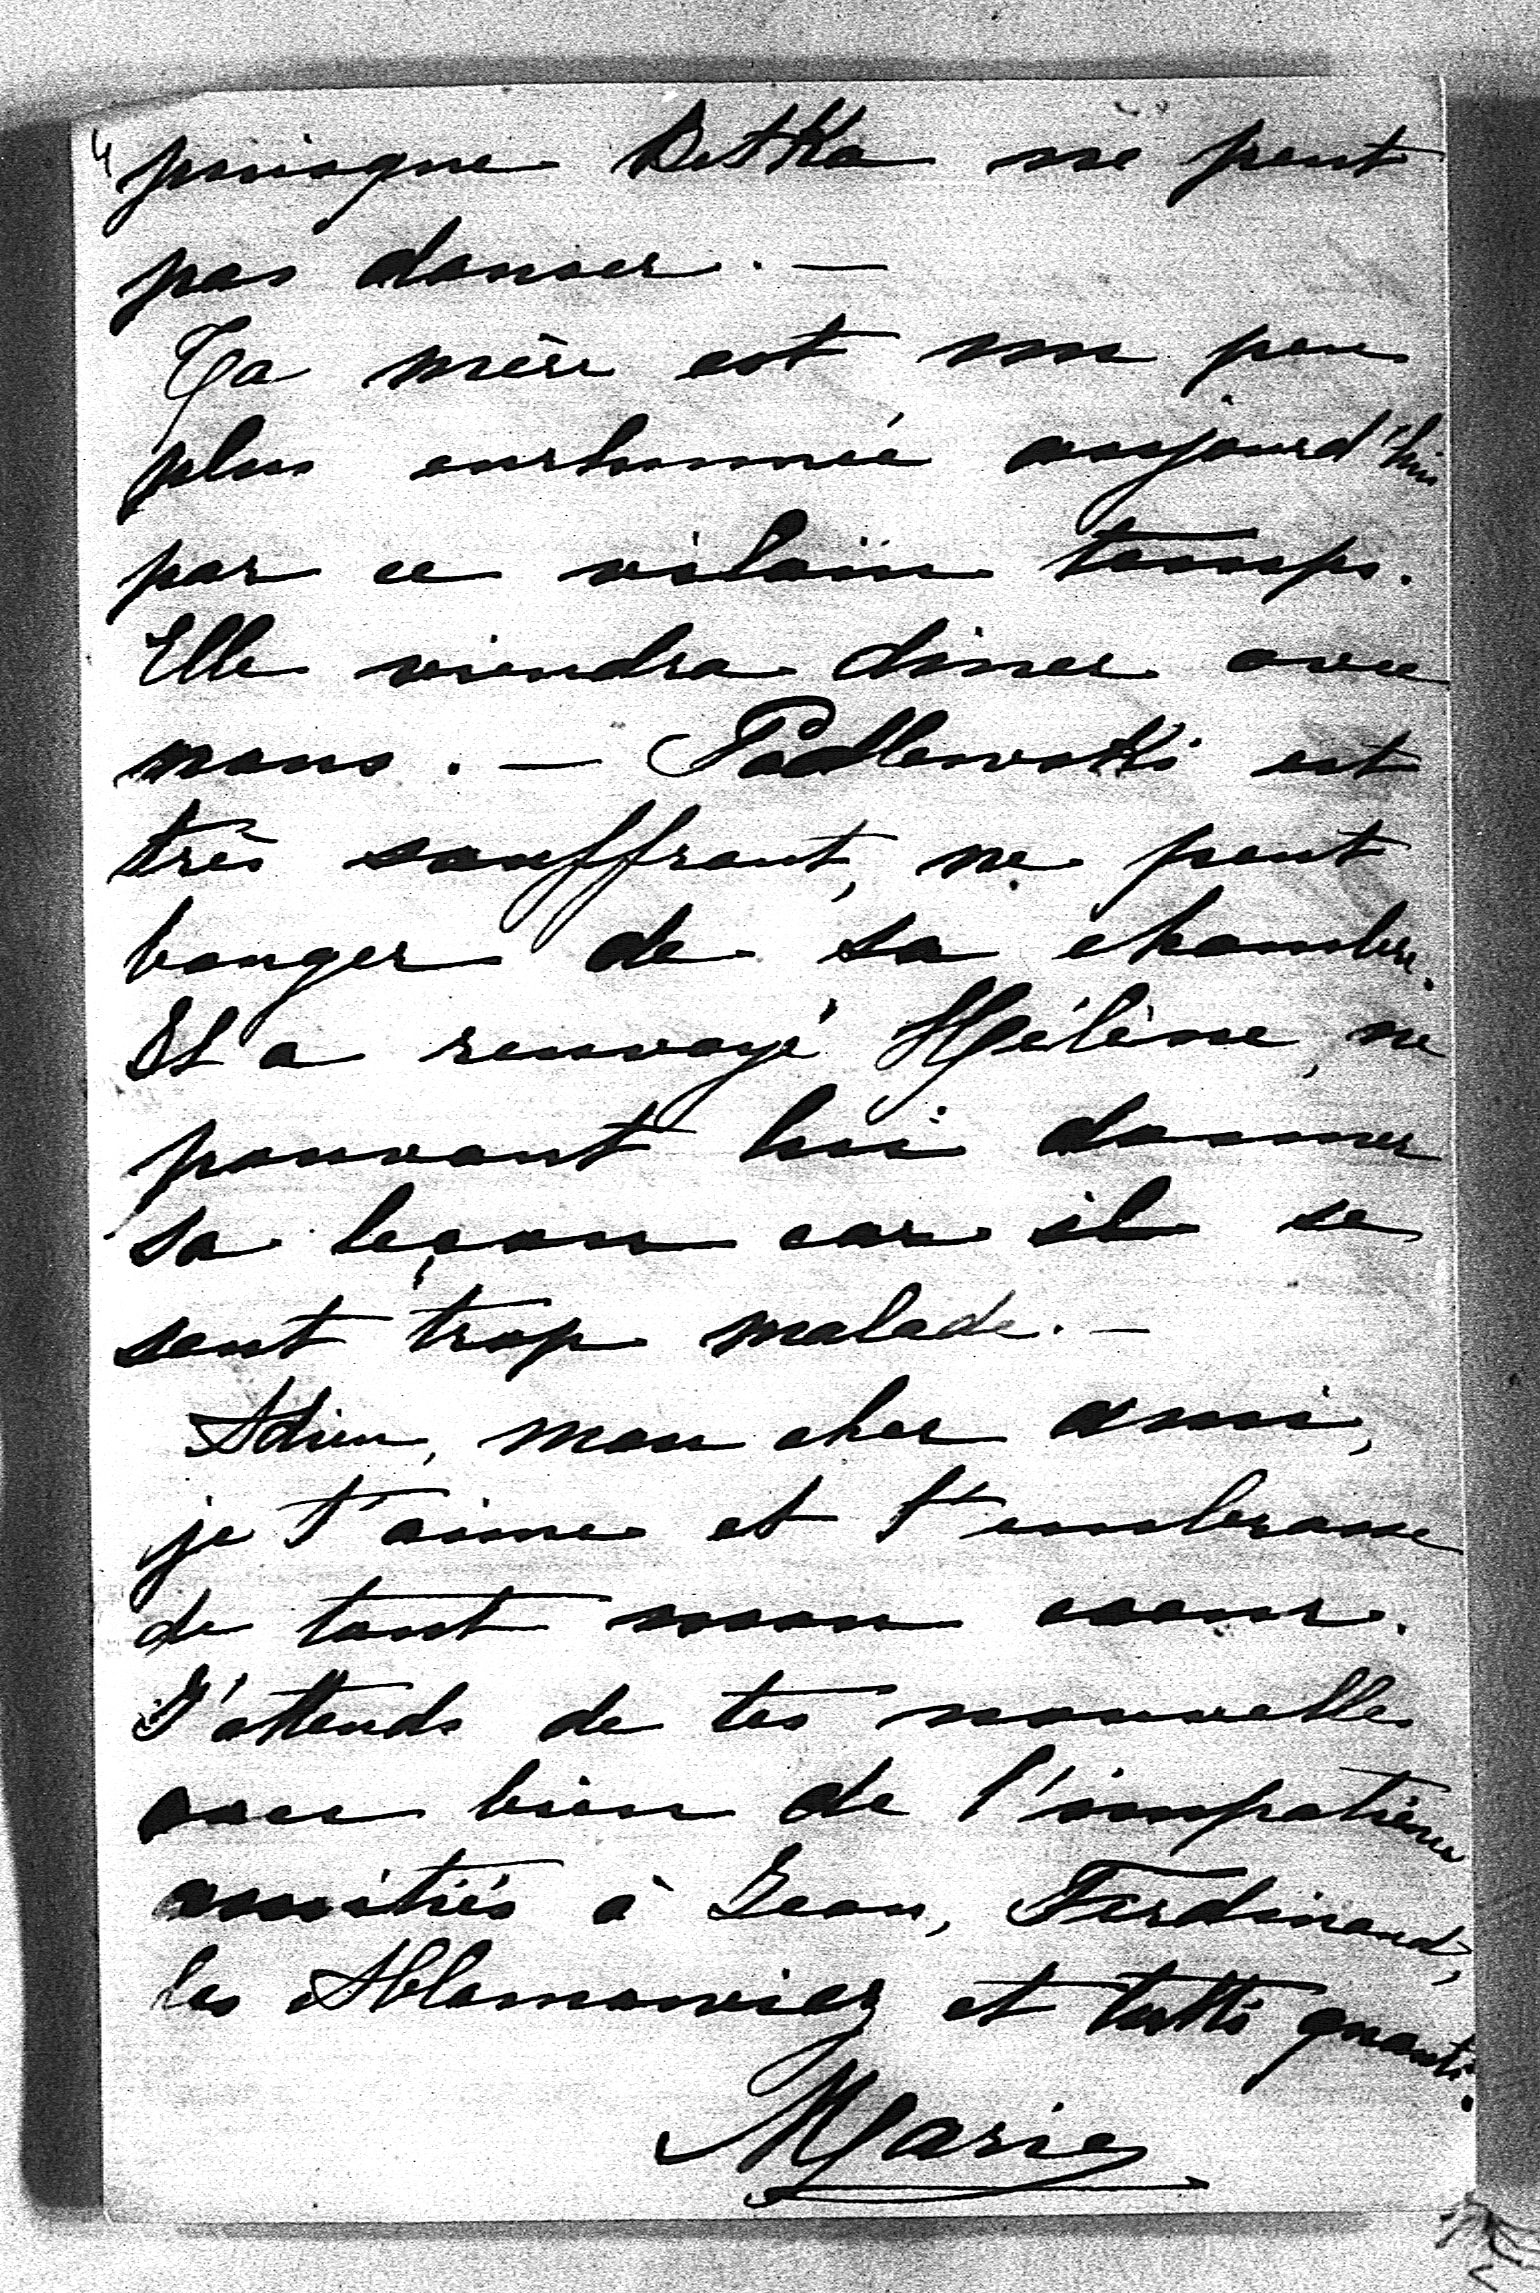 puisque Betka ne peut
pas danser. —
Ta mère est un peu
plus enrhumée aujourd'hui
par ce vilain temps.
Elle viendra diner avec
nous. — Padlewski est
très souffrant, ne peut
bouger de sa chambre.
Il a renvoyé Hélène, ne
pouvant lui donner
sa leçon car il se
sent trop malade. —
Adieu, mon cher ami,
je t'aime et t'embrasse
de tout mon coeur.
J'attends de tes nouvelles
avec bien de l'impatience
amitiés à Jean, Ferdinand,
les Ablamowicz et tutti quanti.
Marie